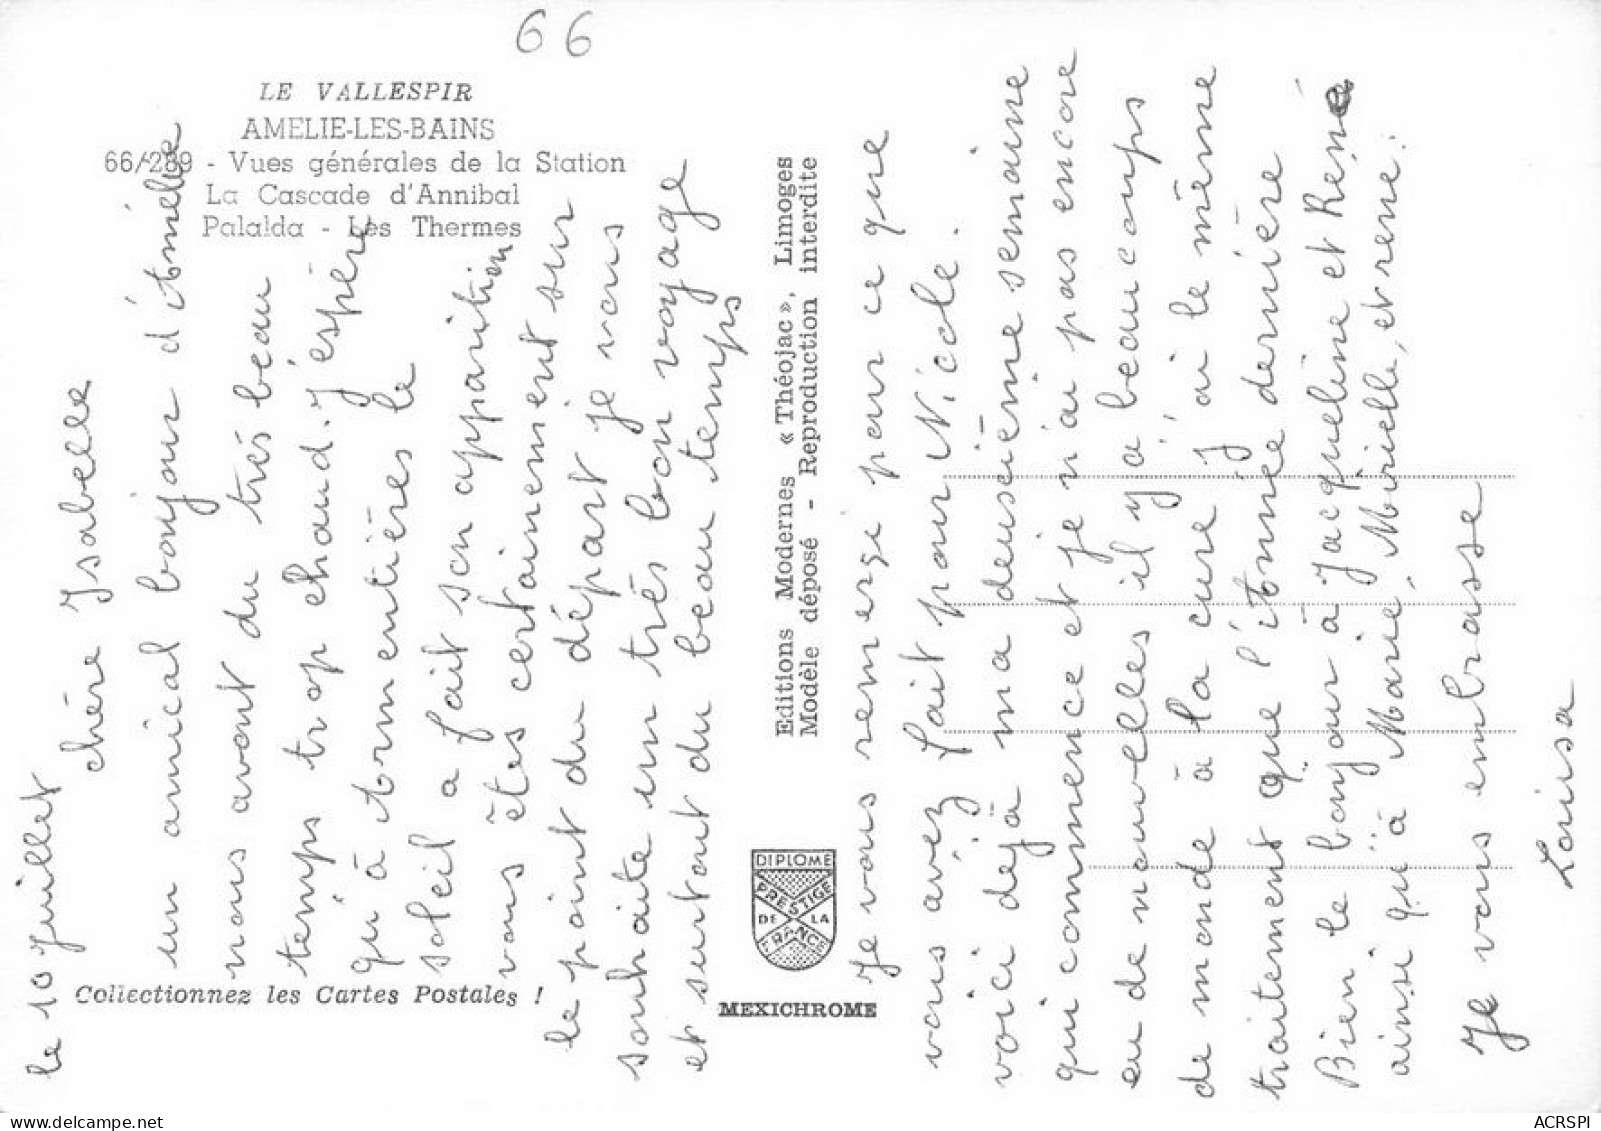 66
LE VALLESPIR
AMELIE-LES-BAINS
66/289 - Vues générales de la Station
La Cascade d'Annibal
Palalda - Les Thermes
Collectionnez les Cartes Postales !
Editions Modernes « Théojac », Limoges
Modèle déposé - Reproduction interdite
DIPLOME
PRESTIGE
DE LA
FRANCE
MEXICHROME
le 10 juillet
chère Isabelle
un amical bonjour d'Amélie
nous avont du très beau
temps trop chaud. J'éspère
qu'à Armentières le
soleil a fait son apparition
vous êtes certainement sur
le point du départ je vous
souhaite un très bon voyage
et surtout du beau temps
Je vous remerçi pour ce que
vous avez fait pour Nicole.
voici dèjà ma deusième semaine
qui commence et je n'ai pas encore
eu de nouvelles il y'a beaucoups
de monde à la cure J'ai le même
traitement que l'Année dernière
Bien le bonjour à Jacqueline et René
ainsi qu'à Marie, Mirielle, et rene.
Je vous embrasse
Louisa
ACRSPI